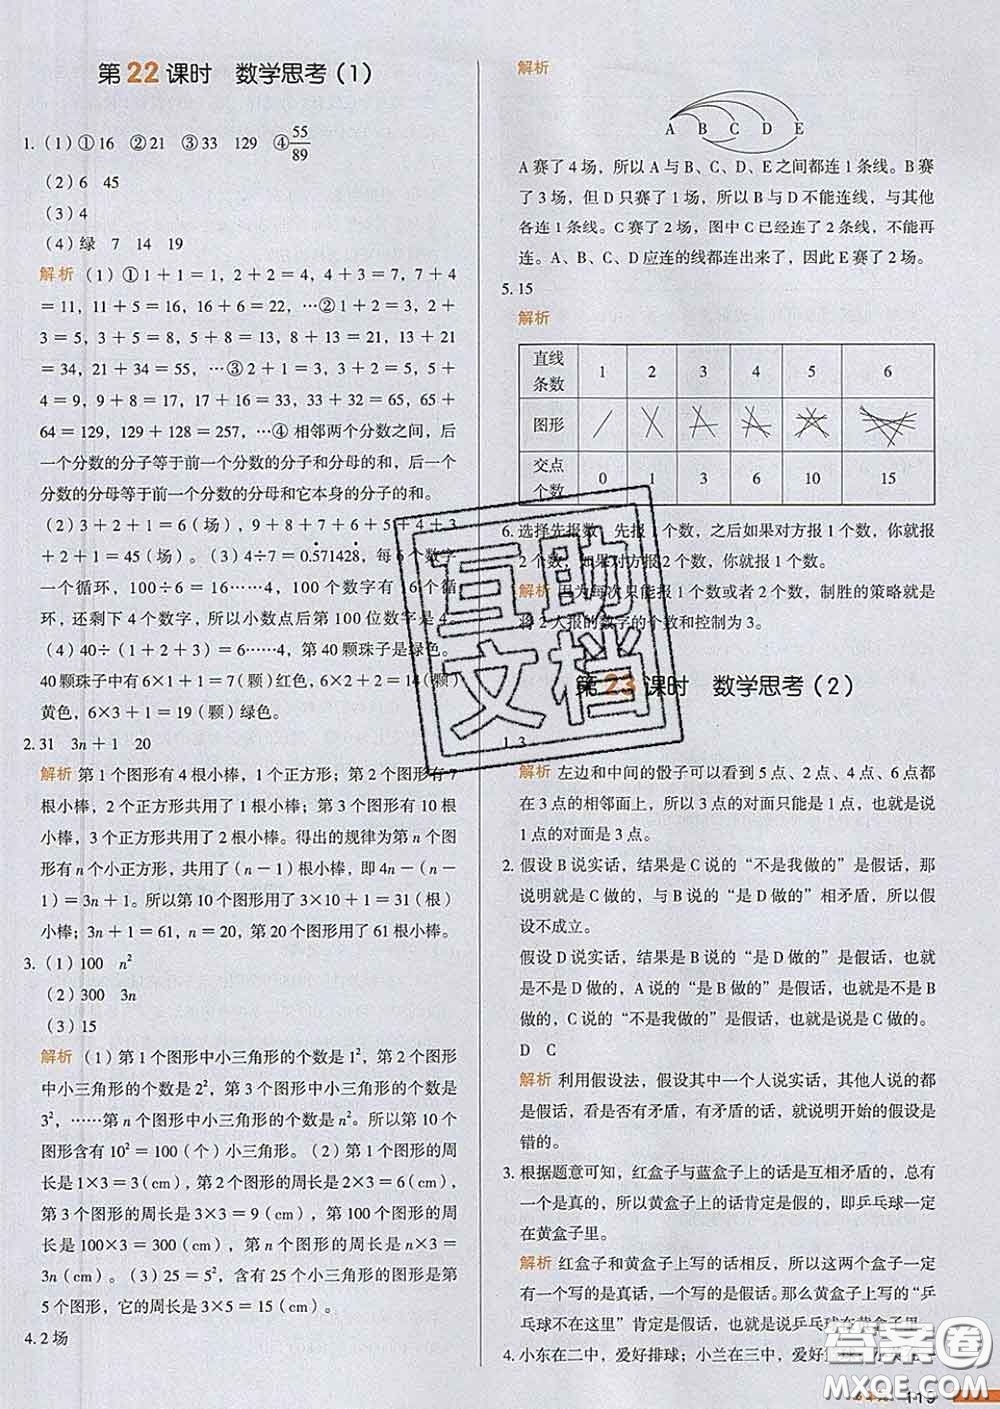 第22课时 数学思考（1）
1.（1）①16 ②21 ③33 129 ④55/89
（2）6 45
（3）4
（4）绿 7 14 19
解析（1）①1＋1＝1，2＋2＝4，4＋3＝7，7＋4
＝11，11＋5＝16，16＋6＝22，…②1＋2＝3，2＋
3＝5，3＋5＝8，5＋8＝13，8＋13＝21，13＋21
＝34，21＋34＝55，…③2＋1＝3，3＋2＝5，5＋
4＝9，9＋8＝17，17＋16＝33，33＋32＝65，65＋
64＝129，129＋128＝257，…④ 相邻两个分数之间，后
一个分数的分子等于前一个分数的分子和分母的和，后一个
分数的分母等于前一个分数的分母和它本身的分子的和。
（2）3＋2＋1＝6（场），9＋8＋7＋6＋5＋4＋3
＋2＋1＝45（场）。（3）4÷7＝0.5̇71428̇，每6个数字
一个循环，100÷6＝16……4，100个数字有16个循
环，还剩下4个数字，所以小数点后第100位数字是4。
（4）40÷（1＋2＋3）＝6……4，第40颗珠子是绿色。
40颗珠子中有6×1＋1＝7（颗）红色，6×2＋2＝14（颗）
黄色，6×3＋1＝19（颗）绿色。
2. 31 3n＋1 20
解析 第1个图形有4根小棒，1个正方形；第2个图形有7
根小棒，2个正方形共用了1根小棒；第3个图形有10根
小棒，3个正方形共用了2根小棒。得出的规律为第n个图
形有n个小正方形，共用了（n－1）根小棒，即4n－（n－
1）＝3n＋1。所以第10个图形用了3×10＋1＝31（根）
小棒；3n＋1＝61，n＝20，第20个图形用了61根小棒。
3.（1）100 n²
（2）300 3n
（3）15
解析（1）第1个图形中小三角形的个数是1²，第2个图形
中小三角形的个数是2²，第3个图形中小三角形的个数是
3²，……第n个图形中小三角形的个数是n²。所以第10个
图形含有10²＝100（个）小三角形。（2）第1个图形的周
长是1×3＝3（cm），第2个图形的周长是2×3＝6（cm），
第3个图形的周长是3×3＝9（cm），第100个图形的周
长是100×3＝300（cm），第n个图形的周长是n×3＝
3n（cm）。（3）25＝5²，含有25个小三角形的图形是第
5个图形，它的周长是3×5＝15（cm）。
4. 2场
解析
A B C D E
A赛了4场，所以A与B、C、D、E之间都连1条线。B赛
了3场，但D只赛了1场，所以B与D不能连线，与其他
各连1条线。C赛了2场，图中C已经连了2条，不能再
连。A、B、C、D应连的线都连出来了，因此E赛了2场。
5. 15
解析
直线条数 1 2 3 4 5 6
图形
交点个数 0 1 3 6 10 15
6. 选择先报数，先报1个数，之后如果对方报1个数，你就报
2个数，如果对方报2个数，你就报1个数。
解析 因为每次只能报1个数或者2个数，制胜的策略就是
将2人报的数字的个数和控制为3。
第23课时 数学思考（2）
1. 3
解析 左边和中间的骰子可以看到5点、2点、4点、6点都
在3点的相邻面上，所以3点的对面只能是1点，也就是说
1点的对面是3点。
2. 假设B说实话，结果是C说的“不是我做的”是假话，那
说明就是C做的，与B说的“是D做的”相矛盾，所以假
设不成立。
假设D说实话，结果是B说的“是D做的”是假话，也就
是不是D做的，A说的“是B做的”是假话，也就是不是B
做的，C说的“不是我做的”是假话，也就是是C做的。
D C
解析 利用假设法，假设其中一个人说实话，其他人说的都
是假话，看是否有矛盾，有矛盾的话，就说明开始的假设是
错的。
3. 根据题意可知，红盒子与蓝盒子上的话是互相矛盾的，总有
一个是真的，所以黄盒子上的话肯定是假的，即乒乓球一定
在黄盒子里。
解析 红盒子和黄盒子上写的话相反，所以这两个盒子一定
有一个写的是真话，一个写的是假话。那么黄盒子上写的“乒
乓球不在这里”肯定是假话，也就是乒乓球在黄盒子里。
4. 小东在二中，爱好排球；小兰在三中，爱好
119
互助
文档
答案圈
MXQE.COM